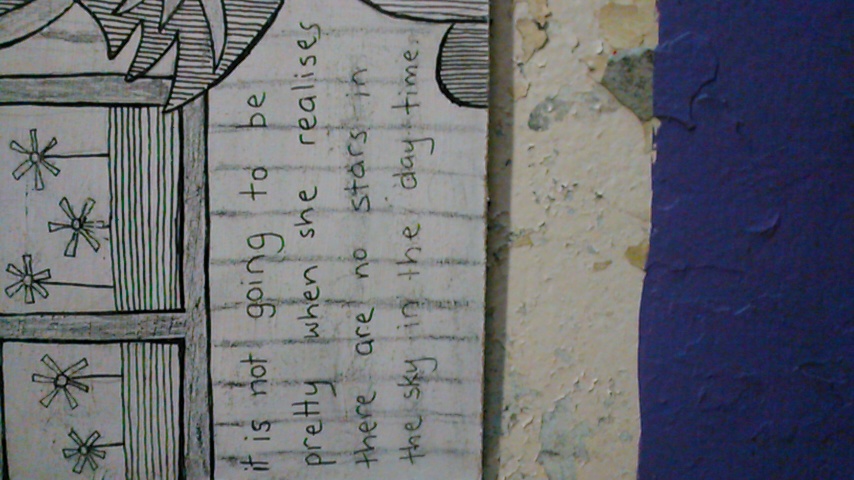 it is not going to be
pretty when she realises
there are no stars in
the sky in the day time.